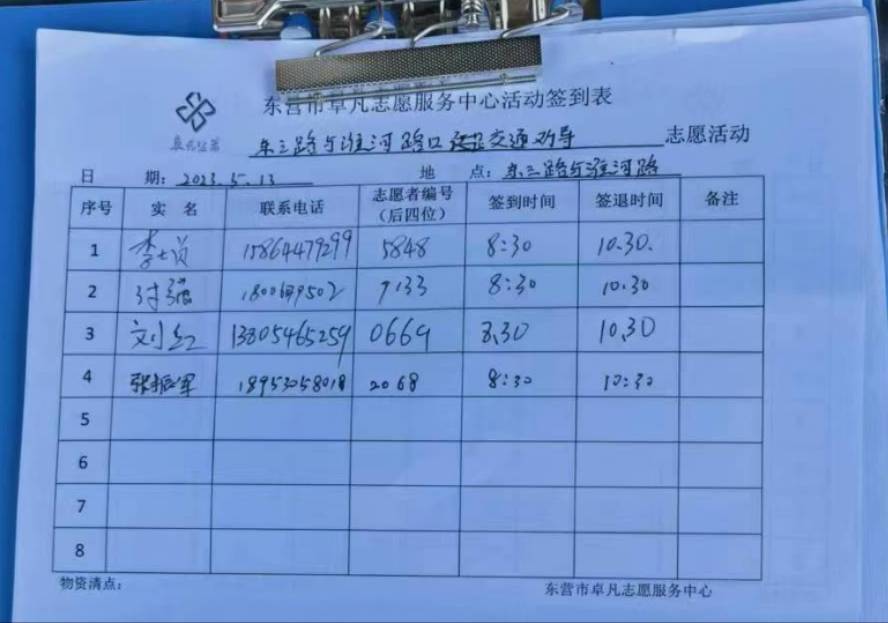 东营市卓凡志愿服务中心活动签到表
东三路与淮河路口 交通劝导 志愿活动
日 期: 2023.5.13 地 点: 东三路与淮河路
序号 实 名 联系电话 志愿者编号(后四位) 签到时间 签退时间 备注
1 李 15864479299 5848 8:30 10.30.
2 强 9133 8:30 10.30
3 刘红 13805465259 0669 8.30 10.30
4 张振军 18953058018 2068 8:30 10:30
5
6
7
8
物资清点:
东营市卓凡志愿服务中心